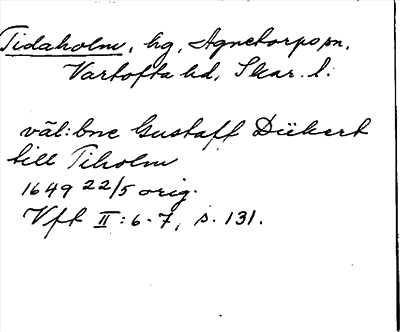 Tidaholm, hg, Agnetorps sn,
Vartofta hd, Skar. l:
väl:bne Gustaff Dükert
till Tiholm
1649 22/5 orig.
Vft II:6-7, s. 131.